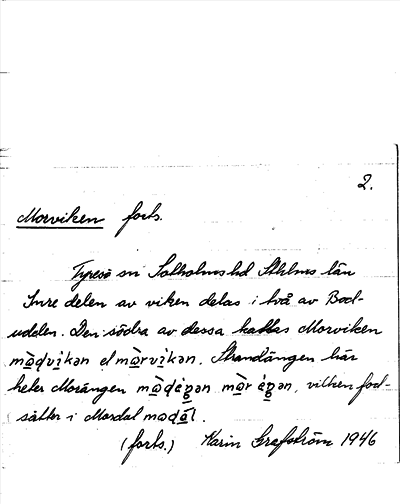 2.
Morviken forts.
Tyresö sn Sotholms hd Sthlms län
Inre delen av viken delas i två av Bod-
udden. Den södra av dessa kallas Morviken
mòḍvikan el mòrvikan. Strandängen här
heter Morängen mòḍäŋən mòr äŋən, vilken fort-
sätter i Mordal modal.
(forts.) Karin Grefström 1946